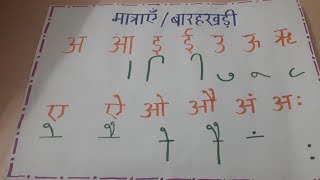 मात्राएँ/बारहखड़ी
अ आ इ ई उ ऊ ऋ
ा ि ी ु ू ृ
ए ऐ ओ औ अं अः
े ै ो ौ ं ः